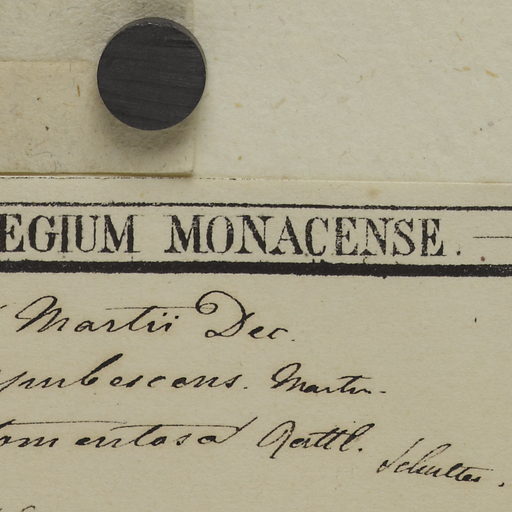 EGIUM MONACENSE.
Martii Dec.
pubescens. Martu.
tomentosa Rottl. Schultes.